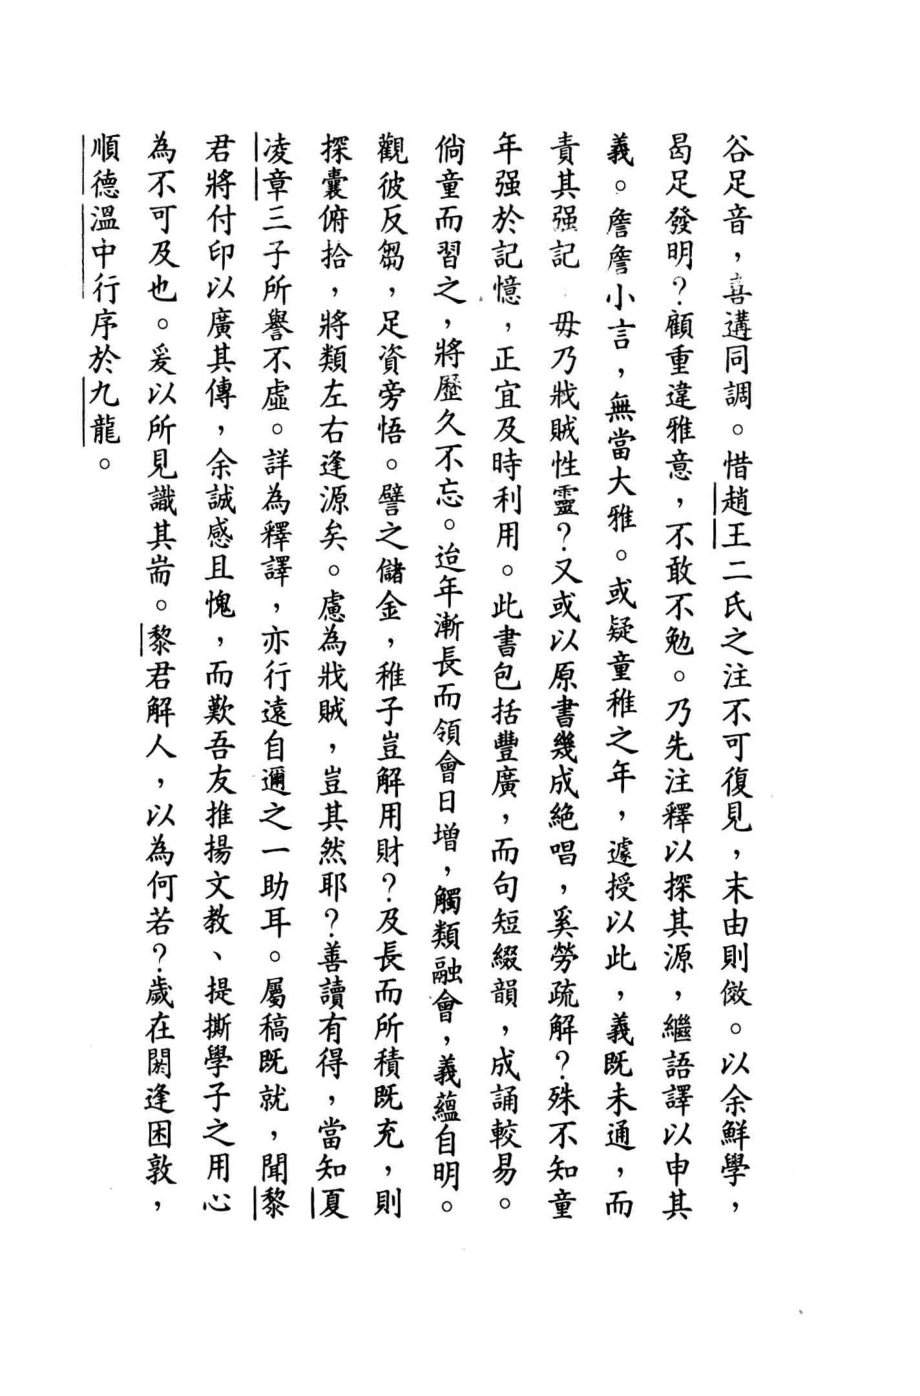 谷足音，喜遘同調。惜趙王二氏之注不可復見，末由則傚。以余鮮學，
曷足發明？顧重違雅意，不敢不勉。乃先注釋以探其源，繼語譯以申其
義。詹詹小言，無當大雅。或疑童稚之年，遽授以此，義既未通，而
責其强記　毋乃戕賊性靈？又或以原書幾成絶唱，奚勞疏解？殊不知童
年强於記憶，正宜及時利用。此書包括豐廣，而句短綴韻，成誦較易。
倘童而習之，將歷久不忘。迨年漸長而領會日增，觸類融會，義蘊自明。
觀彼反芻，足資旁悟。譬之儲金，稚子豈解用財？及長而所積既充，則
探囊俯拾，將類左右逢源矣。慮為戕賊，豈其然耶？善讀有得，當知夏
凌章三子所譽不虛。詳為釋譯，亦行遠自邇之一助耳。屬稿既就，聞黎
君將付印以廣其傳，余誠感且愧，而歎吾友推揚文教、提撕學子之用心
為不可及也。爰以所見識其耑。黎君解人，以為何若？歲在閼逢困敦，
順德溫中行序於九龍。